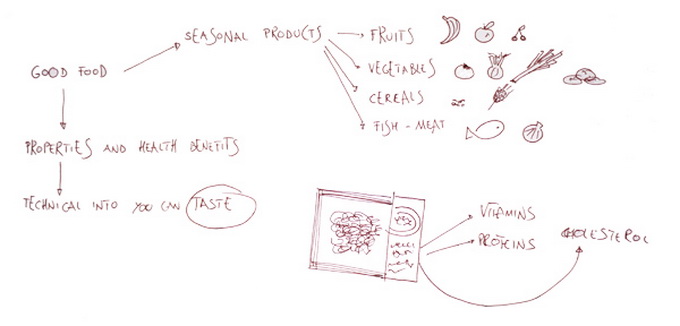 SEASONAL PRODUCTS
FRUITS
GOOD FOOD
VEGETABLES
CEREALS
FISH - MEAT
PROPERTIES AND HEALTH BENEFITS
TECHNICAL INTO YOU CAN TASTE
VITAMINS
PROTEINS
CHOLESTEROL